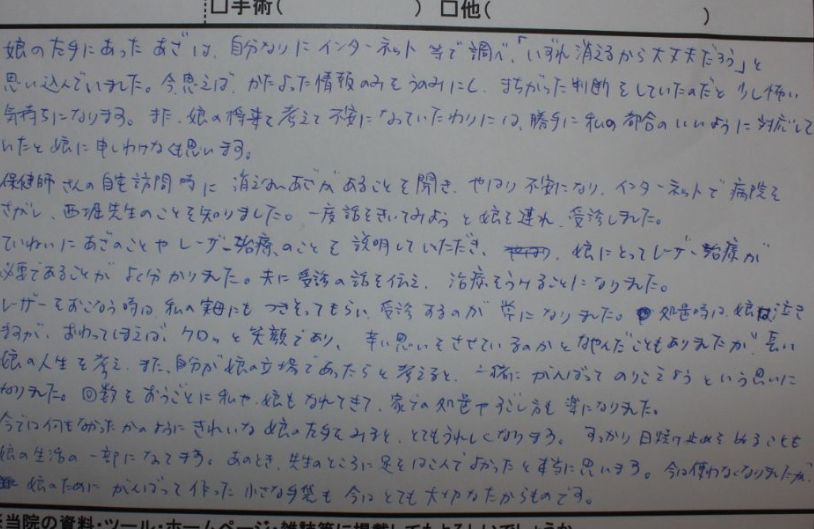 □手術(　　　　　　　) □他(　　　　　　　　　　)
娘の左手にあったあざは、自分なりにインターネット等で調べ、「いずれ消えるから大丈夫だろう」と
思い込んでいました。今思えば、かたよった情報のみをうのみにし、まちがった判断をしていたのだと少し怖い
気持ちになります。また、娘の将来を考えて不安になっていたわりには、勝手に私の都合のいいように対応して
いたと娘に申しわけなく思います。
保健師さんの自宅訪問時に消えないあざがあることを聞き、やはり不安になり、インターネットで病院を
さがし、西堀先生のことを知りました。一度話をきいてみようと娘を連れ、受診しました。
ていねいにあざのことやレーザー治療のことを説明していただき、娘にとってレーザー治療が
必要であることがよく分かりました。夫に受診の話を伝え、治療をうけることになりました。
レーザーをおこなう時は、私の実母にもつきそってもらい、受診するのが常になりました。処置時は、娘は泣き
ますが、おわってしまえば、ケロッと笑顔であり、辛い思いをさせているのかとなやんだこともありましたが、長い
娘の人生を考え、また、自分が娘の立場であったらと考えると、一緒にがんばってのりこえようという思いに
なりました。回数をおうごとに私や娘もなれてきて、家での処置やすごし方も楽になりました。
今では何もなかったかのようにきれいな娘の左手をみると、とてもうれしくなります。すっかり日焼け止めをぬることも
娘の生活の一部になってます。あのとき、先生のところに足をはこんでよかったと本当に思います。今は使わなくなりましたが、
娘のためにがんばって作った小さな手袋も今はとても大切なたからものです。
当院の資料・ツール・ホームページ・雑誌等に掲載してもよろしいでしょうか